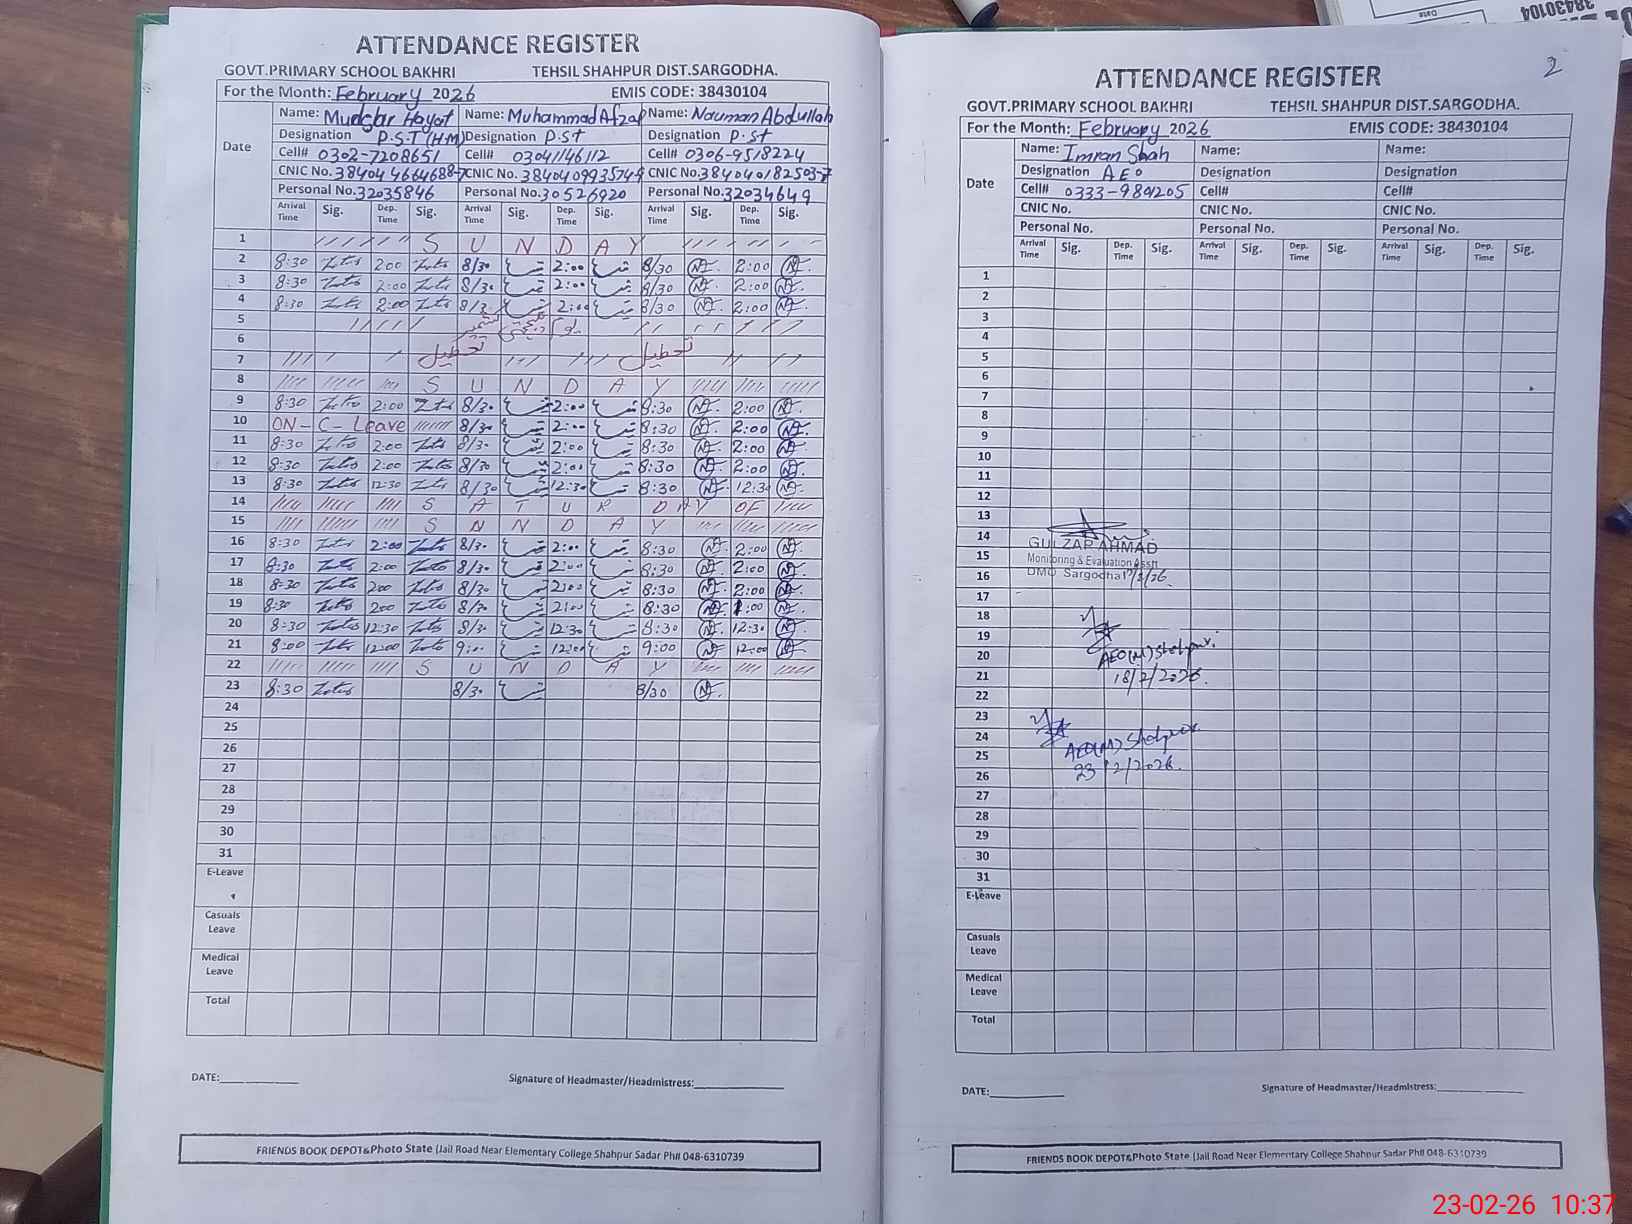 ATTENDANCE REGISTER
GOVT.PRIMARY SCHOOL BAKHRI TEHSIL SHAHPUR DIST.SARGODHA.
For the Month: February 2026 EMIS CODE: 38430104
Date
Name: Mudasar Hayat Name: Muhammad Afzal Name: Nauman Abdullah
Designation P.S.T (H.M) Designation P.st Designation P.st
Cell# 0302-7208651 Cell# 03041146112 Cell# 0306-9518224
CNIC No. 38404 4664688-7 CNIC No. 3840409935749 CNIC No. 384040182503-7
Personal No. 32035846 Personal No. 30526920 Personal No. 32034649
Arrival Time Sig. Dep. Time Sig. Arrival Time Sig. Dep. Time Sig. Arrival Time Sig. Dep. Time Sig.
1 S U N D A Y
2 8:30 2:00 8/30 2:00 8/30 2:00
3 8:30 2:00 8/30 2:00 8/30 2:00
4 8:30 2:00 8/30 2:00 8/30 2:00
5 یوم یکجہتی کشمیر
6
7 تعطیل تعطیل
8 S U N D A Y
9 8:30 2:00 8/30 2:00 8:30 2:00
10 ON - C - Leave 8/30 2:00 8:30 2:00
11 8:30 2:00 8/30 2:00 8:30 2:00
12 8:30 2:00 8/30 2:00 8:30 2:00
13 8:30 12:30 8/30 12:30 8:30 12:30
14 S A T U R D AY OF
15 S N N D A Y
16 8:30 2:00 8/30 2:00 8:30 2:00
17 8:30 2:00 8/30 2:00 8:30 2:00
18 8:30 200 8/30 2:00 8:30 2:00
19 8:30 200 8/30 2:00 8:30 1:00
20 8:30 12:30 8/30 12:30 8:30 12:30
21 8:00 12:00 9:00 12:00 9:00 12:00
22 S U N D A Y
23 8:30 8/30 8/30
24
25
26
27
28
29
30
31
E-Leave
Casuals Leave
Medical Leave
Total
DATE: Signature of Headmaster/Headmistress:
FRIENDS BOOK DEPOT&Photo State (Jail Road Near Elementary College Shahpur Sadar Ph# 048-6310739
2
ATTENDANCE REGISTER
GOVT.PRIMARY SCHOOL BAKHRI TEHSIL SHAHPUR DIST.SARGODHA.
For the Month: February 2026 EMIS CODE: 38430104
Date
Name: Imran Shah Name: Name:
Designation AEO Designation Designation
Cell# 0333-9801205 Cell# Cell#
CNIC No. CNIC No. CNIC No.
Personal No. Personal No. Personal No.
Arrival Time Sig. Dep. Time Sig. Arrival Time Sig. Dep. Time Sig. Arrival Time Sig. Dep. Time Sig.
1
2
3
4
5
6
7
8
9
10
11
12
13
14 GULZAR AHMAD
15 Monitoring & Evaluation Asstt
16 DMO Sargodha
17
18
19
20 AEO(M) Shahpur.
21 18/2/2026.
22
23
24 AEO(M) Shahpur
25 23/2/2026.
26
27
28
29
30
31
E-Leave
Casuals Leave
Medical Leave
Total
DATE: Signature of Headmaster/Headmistress:
FRIENDS BOOK DEPOT&Photo State (Jail Road Near Elementary College Shahpur Sadar Ph# 048-6310739
Date
38430104
23-02-26 10:37